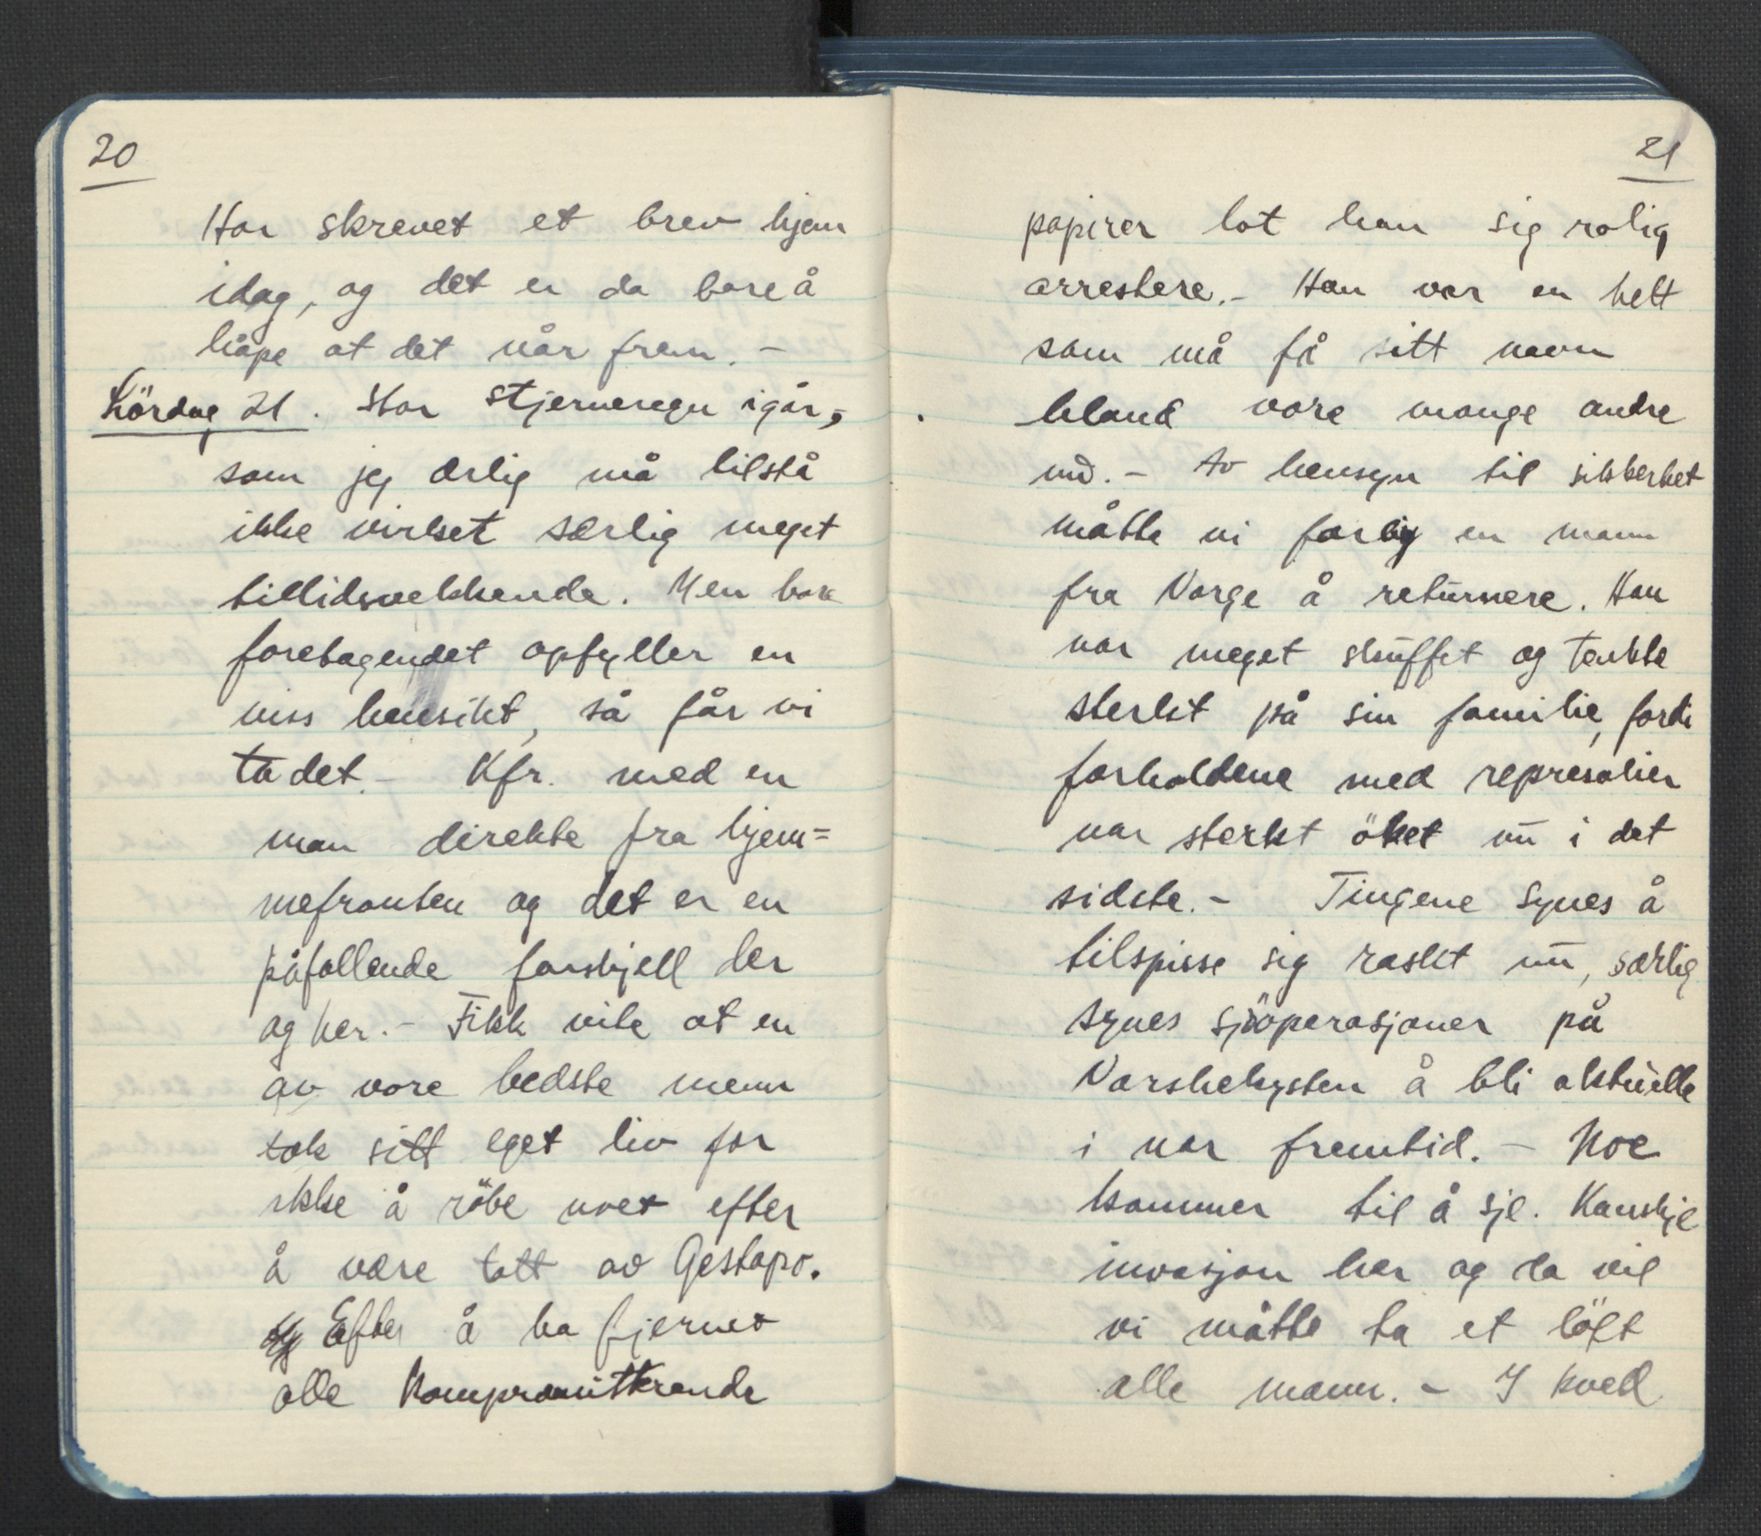 20
Har skrevet et brev hjem
idag, og det er da bare å
håpe at det når frem. -
Lördag 21. Har stjerneregn igår,
som jeg ærlig må tilstå
ikke virket særlig meget
tillidsvekkende. Men bare
foretagendet opfyller en
viss hensikt, så får vi
ta det. - Kfr. med en
man direkte fra hjem=
mefronten og det er en
påfallende forskjell der
og her. - Fikk vite at en
av vore bedste menn
tok sitt eget liv for
ikke å röbe noet efter
å være tatt av Gestapo.
Efter å ha fjernet
alle kompromitterende
21
papirer lot han sig rolig
arrestere. - Han var en helt
som må få sitt navn
bland vore mange andre
nå. - Av hensyn til sikkerhet
måtte vi forby en mann
fra Norge å returnere. Han
var meget skuffet og tenkte
sterkt på sin familie, fordi
forholdene med represalier
var sterkt öket nu i det
sidste. - Tingene synes å
tilspisse sig raskt nu, særlig
synes sjöoperasjoner på
Norskekysten å bli aktuelle
i nær fremtid. - Noe
kommer til å sje. Kanskje
invasjon her og da vil
vi måtte ta et löft
alle mann. - I kveld